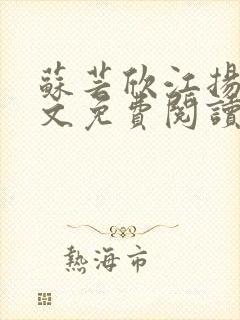 蘇芸欣江揚
文免費閱讀
熱海市